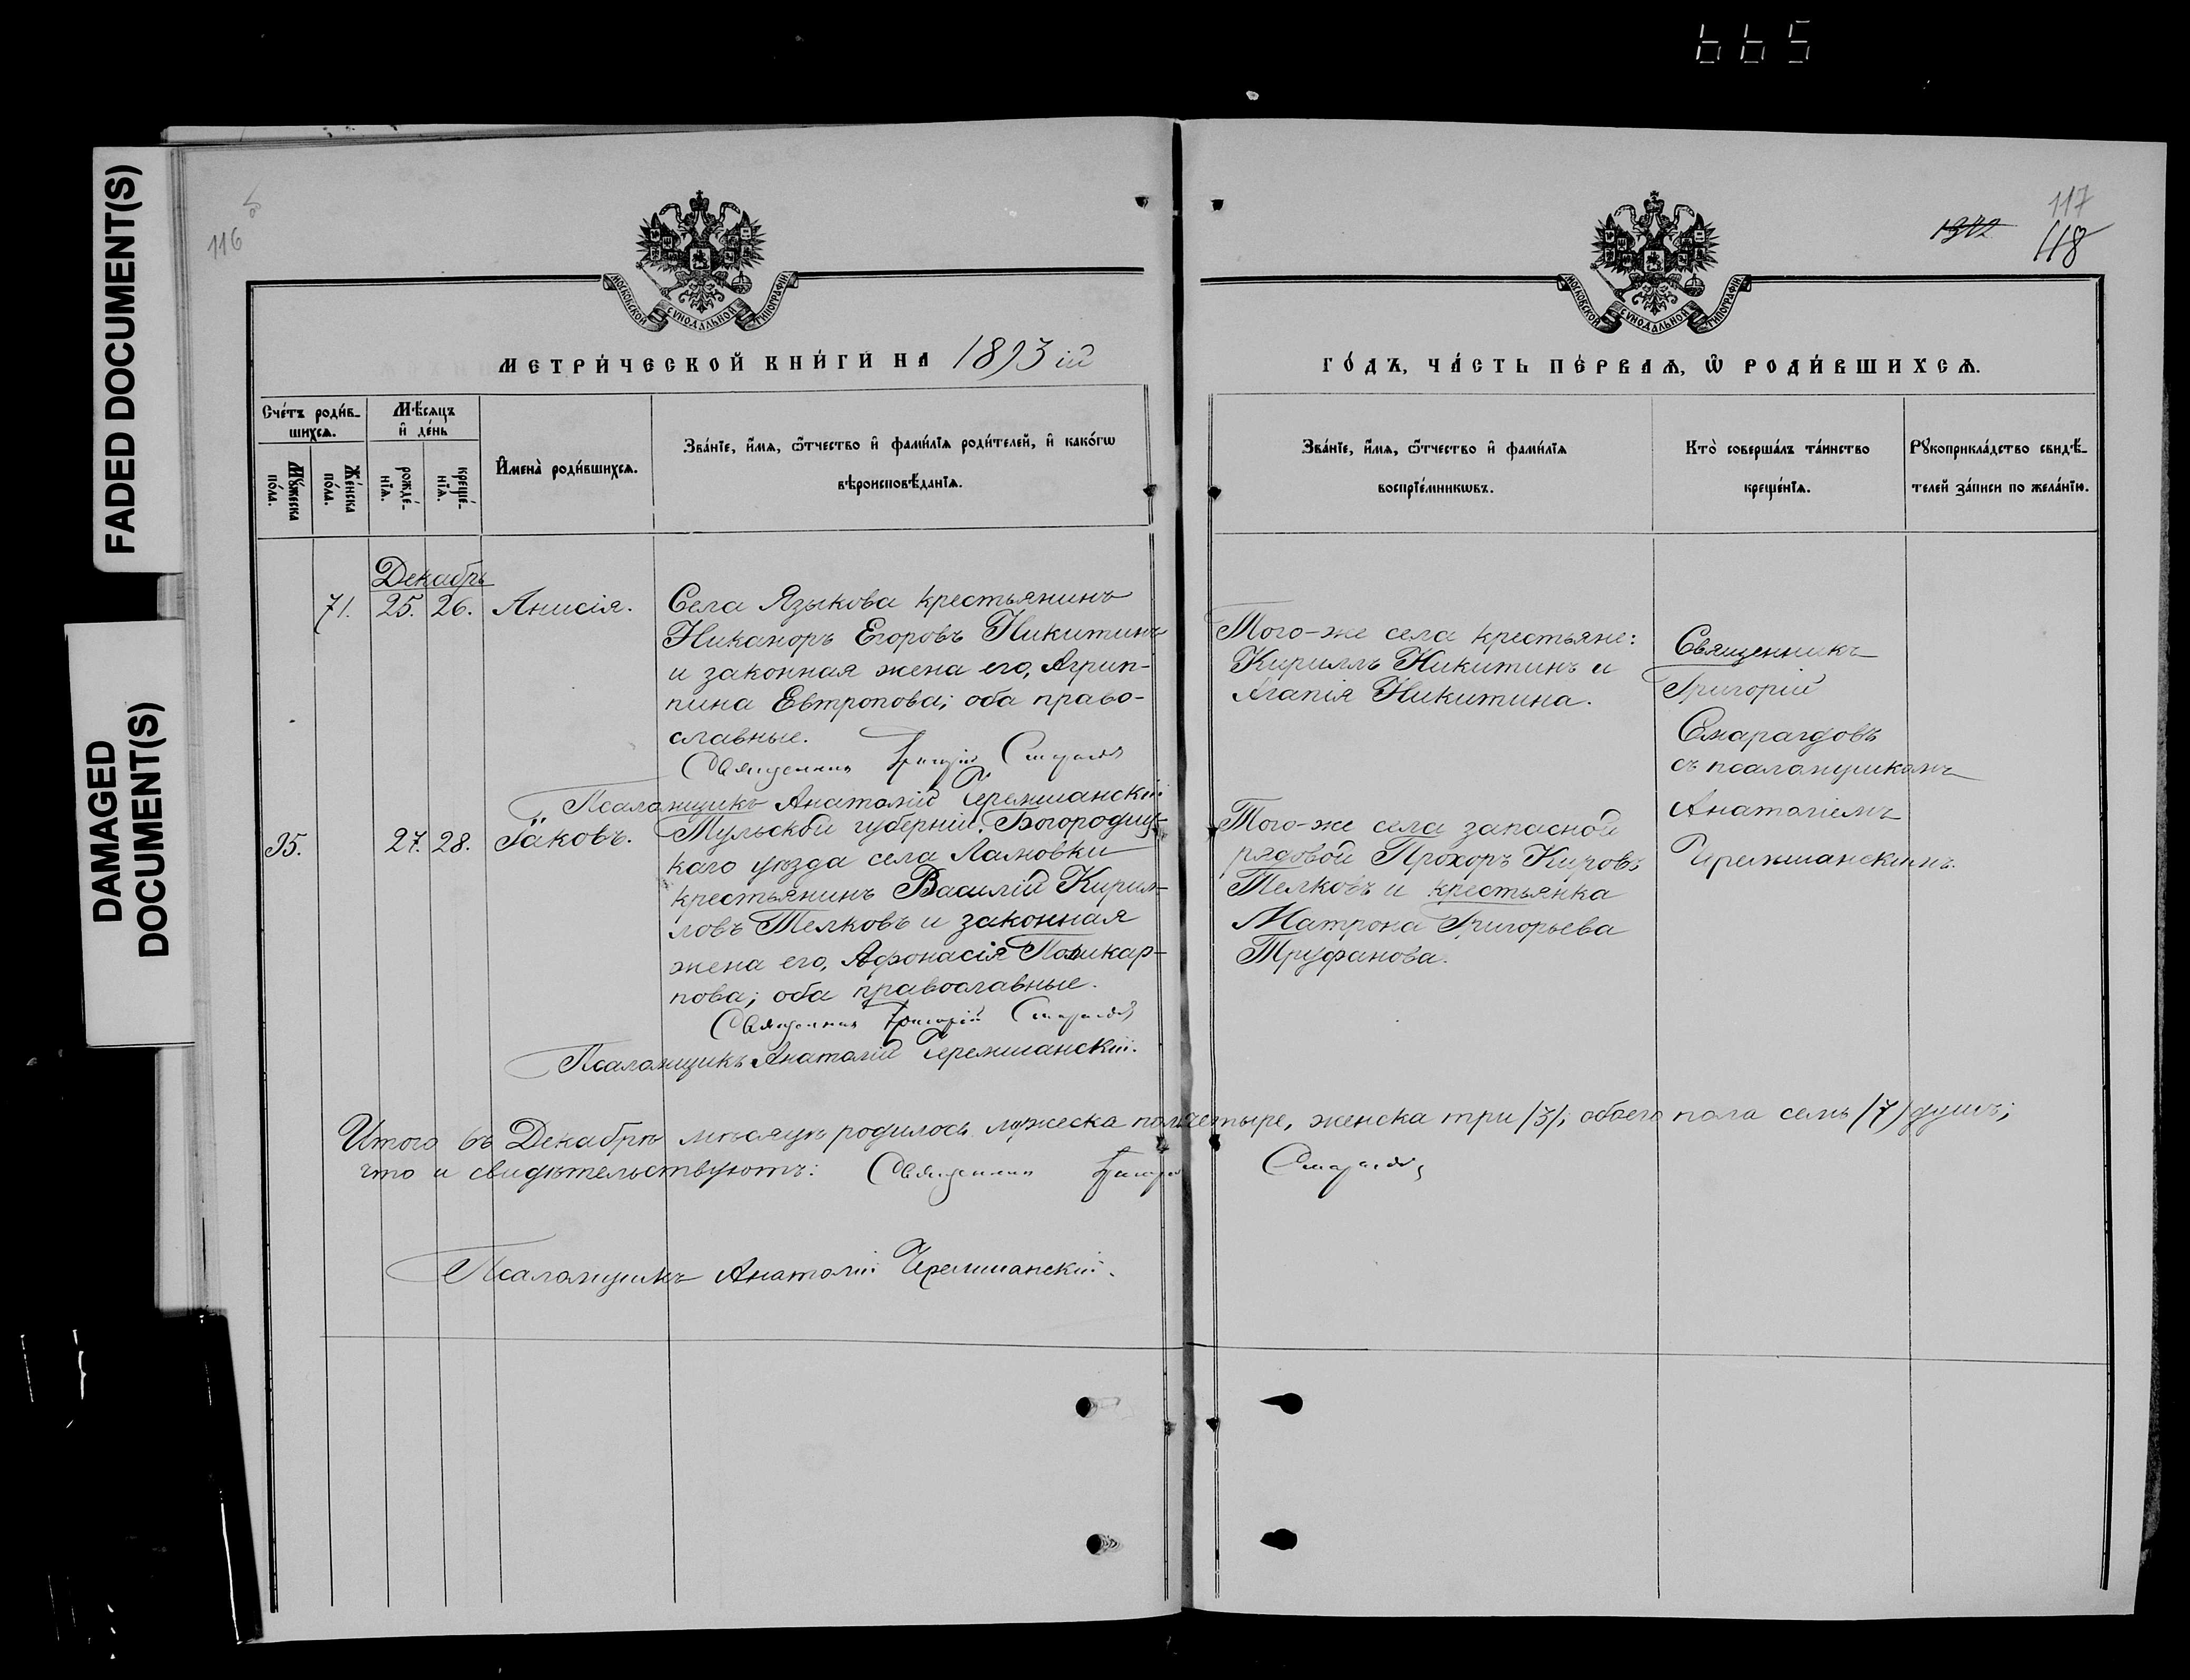 665
FADED DOCUMENT(S)
DAMAGED
DOCUMENT(S)
116
117
1342
118
МОСКОВСКОЙ СѴНОДАЛЬНОЙ ТИПОГРАФІИ
МОСКОВСКОЙ СѴНОДАЛЬНОЙ ТИПОГРАФІИ
МЕТРИ́ЧЕСКОЙ КНИ́ГИ НА 1893 ій
ГО́ДЪ, ЧА́СТЬ ПЕ́РВАѦ, Ѿ РОДИ́ВШИХСѦ.
Сче́тъ роди́в-
шихсѧ.
Мꙋ́жеска
по́ла.
Же́нска
по́ла.
Мѣ́сѧцъ
и҆ де́нь
рожде́-
нїѧ.
креще́-
нїѧ.
И҆мена̀ роди́вшихсѧ.
Зва́нїе, и҆́мѧ, ѻ҆́тчество и҆ фами́лїѧ роди́телей, и҆ како́гѡ
вѣроисповѣ́данїѧ.
Зва́нїе, и҆́мѧ, ѻ҆́тчество и҆ фами́лїѧ
воспрїе́мникѡвъ.
Кто̀ соверша́лъ та́инство
креще́нїѧ.
Рꙋкоприкла́дство свидѣ́-
телей за́писи по жела́нїю.
Декабрь
71. 25. 26. Анисія.
Села Языкова крестьянинъ
Никаноръ Егоровъ Никитинъ
и законная жена его, Агрип-
пина Евтропова; оба право-
славные.
Священникъ Григорій Смарагдовъ
Псаломщикъ Анатолій Черемшанскій
Того-же села крестьяне:
Кириллъ Никитинъ и
Агапія Никитина.
Священникъ
Григорій
Смарагдовъ
съ псаломщикомъ
Анатоліемъ
Черемшанскимъ.
35. 27. 28. Іаковъ.
Тульской губерніи, Богородиц-
каго уѣзда села Ламовки
крестьянинъ Василій Кирил-
ловъ Телковъ и законная
жена его, Афонасія Поликар-
пова; оба православные.
Священникъ Григорій Смарагдовъ
Псаломщикъ Анатолій Черемшанскій.
Того-же села запасной
рядовой Прохоръ Кировъ
Телковъ и крестьянка
Матрона Григорьева
Труфанова.
Итого въ Декабрѣ мѣсяцѣ родилось мужеска пола четыре, женска три /3/; обоего пола семь /7/ душъ;
что и свидѣтельствуютъ: Священникъ Григорій Смарагдовъ
Псаломщикъ Анатолій Черемшанскій.